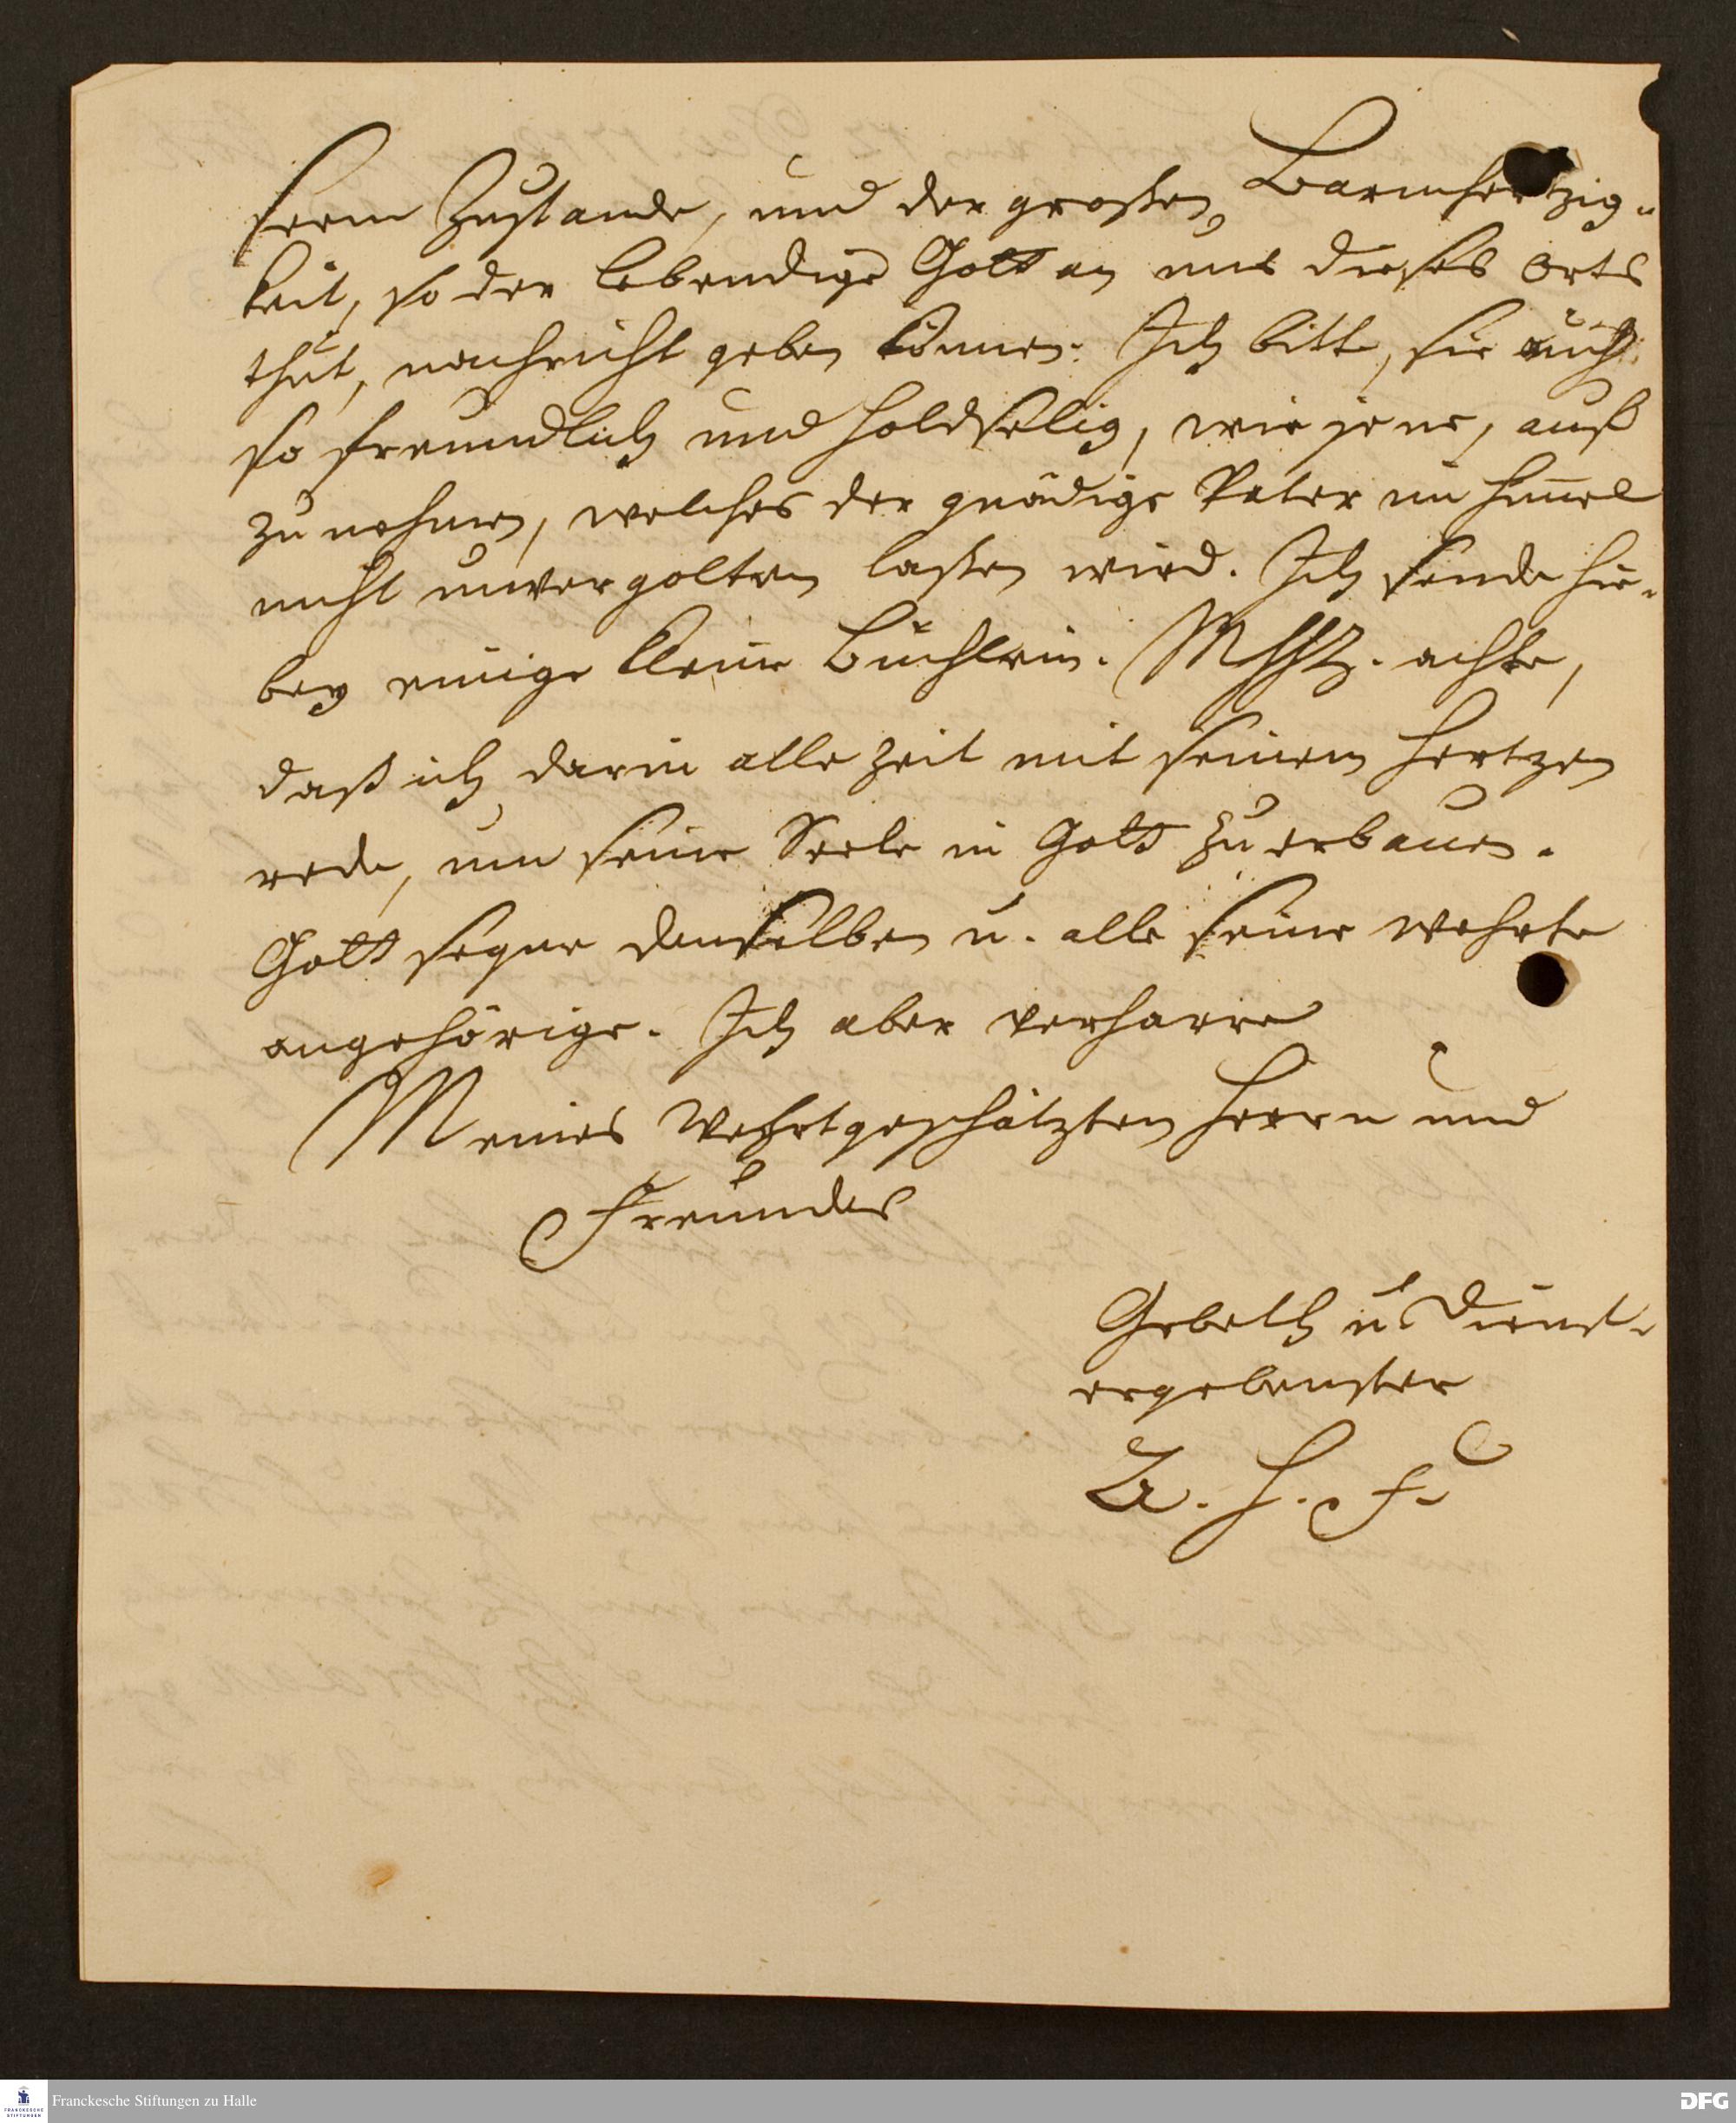 serm Zustande, und der großen Barmhertzig-
keit, so der lebendige Gott an uns dieses Orts
thut, nachricht geben können. Ich bitte, sie auch
so freundlich und holdselig, wie jene, auff
zu nehmen, welches der gnädige Vater im himel
nicht unvergolten laßen wird. Ich sende hie-
bey einige kleine Büchlein. MhhL. achte,
daß ich darin alle zeit mit seinem Hertzen
rede, um seine Seele in Gott zu erbauen.
Gott segne denselben u. alle seine wehrte
angehörige. Ich aber verharre
Meines Wehrtgeschätzten Herrn und
Freundes
Gebeth u. Dienst-
ergebenster
A. H. F.
Franckesche Stiftungen zu Halle
FRANCKESCHE
STIFTUNGEN
DFG